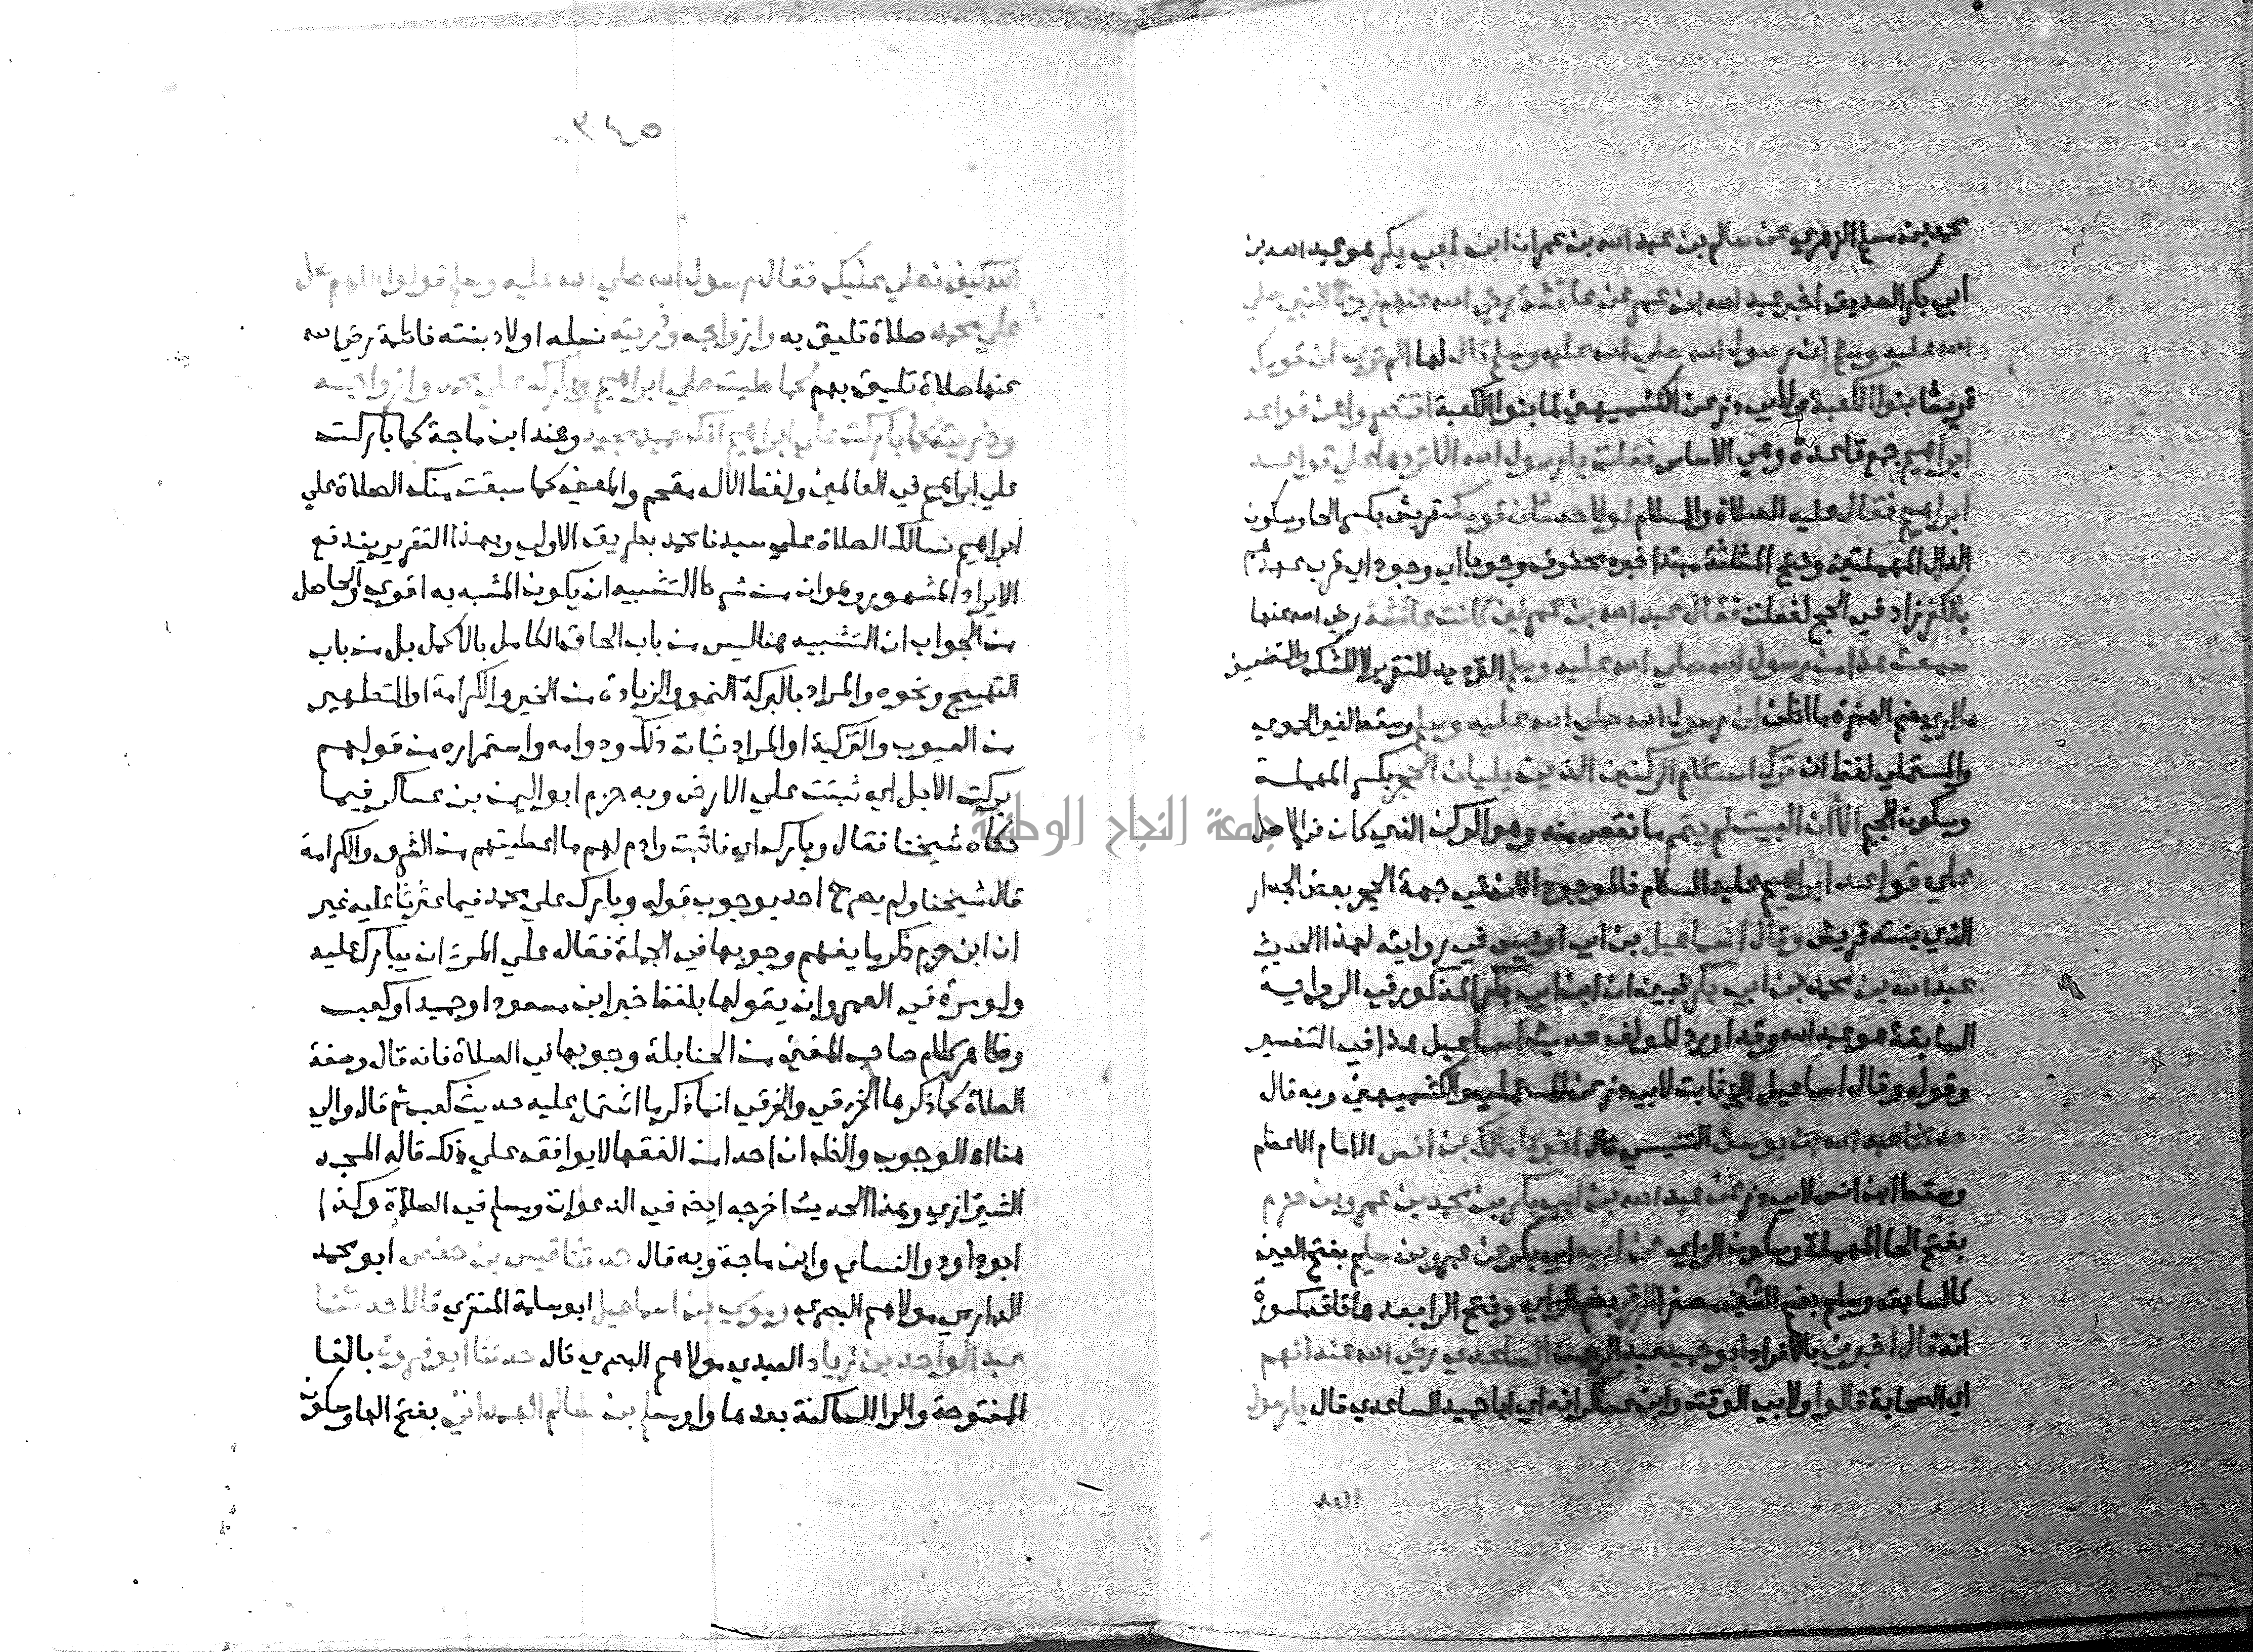 محمد بن مسلم الزهري عن سالم بن عبد الله بن عمر ان ابن ابي بكر هو عبد الله بن
ابي بكر الصديق اخبر عبد الله بن عمر عن عائشة رضي الله عنهم زوج النبي صلي
الله عليه وسلم ان رسول الله صلي الله عليه وسلم قال لها الم تري ان قومك
قريشا بنوا الكعبة ولابي ذر عن الكشميهني لما بنوا الكعبة اقتصروا عن قواعد
ابراهيم جمع قاعدة وهي الاساس فقلت يا رسول الله الا تردها علي قواعد
ابراهيم فقال عليه الصلاة والسلام لولا حدثان قومك قريش بكسر الحا وسكون
الدال المهملتين وفتح المثلثة مبتدا خبره محذوف وجوبا اي وجود اي قرب عهدهم
بالكفر زاد في الحج لفعلت فقال عبد الله بن عمر لين كانت عائشة رضي الله عنها
سمعت هذا من رسول الله صلي الله عليه وسلم الترديد للتقرير لا للشك والتضعيف
ما اري بضم الهمزة ما اظن ان رسول الله صلي الله عليه وسلم وسقط لغير الحموي
والمستملي لفظ ان ترك استلام الركنين الذين يليان الحجر بكسر المهملة
وسكون الجيم الا ان البيت لم يتمم ما نقص منه وهو الركن الذي كان في الاصل
علي قواعد ابراهيم عليه السلام فالموجود الان في جهة الحجر بعض الجدار
الذي بنته قريش وقال اسماعيل بن ابي اويس في روايته لهذا الحديث
عبد الله بن محمد بن ابي بكر فبين ان ابن ابي بكر المذكور في الرواية
السابقة هو عبد الله وقد اورد المولف حديث اسماعيل هذا في التفسير
وقوله وقال اسماعيل الخ ثابت لابي ذر عن المستملي والكشميهني وبه قال
حدثنا عبد الله بن يوسف التنيسي قال اخبرنا مالك بن انس الامام الاعظم
وسقط ابن انس لابي ذر عن عبد الله بن ابي بكر بن محمد بن عمرو بن حزم
بفتح الحا المهملة وسكون الزاي عن ابيه ابي بكر عن عمرو بن سليم بفتح العين
كالسابق وسليم بضم السين مصغرا الزرقي بضم الزاي وفتح الرا بعدها قاف مكسورة
انه قال اخبرني بالافراد ابو حميد عبد الرحمن الساعدي رضي الله عنه انهم
اي الصحابة قالوا ولابي الوقت وابن عساكر انه اي ابا حميد الساعدي قال يا رسول
الله
الله كيف نصلي عليك فقال رسول الله صلي الله عليه وسلم قولوا اللهم صل
علي محمد صلاة تليق به وازواجه وذريته نسله اولاد بنته فاطمة رضي الله
عنها صلاة تليق بهم كما صليت علي ابراهيم وبارك علي محمد وازواجه
وذريته كما باركت علي ابراهيم انك حميد مجيد وعند ابن ماجة كما باركت
علي ابراهيم في العالمين ولفظ الال مقحم والمعني كما سبقت منك الصلاة علي
ابراهيم نسالك الصلاة علي سيدنا محمد بطريق الاولي وبهذا التقرير يندفع
الايراد المشهور وهو ان من شرط التشبيه ان يكون المشبه به اقوي والحاصل
من الجواب ان التشبيه هنا ليس من باب الحاق الكامل بالاكمل بل من باب
التهييج ونحوه والمراد بالبركة النمو والزيادة من الخير والكرامة او التطهير
من العيوب والتزكية او المراد ثبات ذلك ودوامه واستمراره من قولهم
بركت الابل اي ثبتت علي الارض وبه جزم ابو اليمن بن عساكر فيما
حكاه شيخنا فقال وبارك اي فاثبت وادم لهم ما اعطيتهم من الشرف والكرامة
قال شيخنا ولم يصرح احد بوجوب قوله وبارك علي محمد فيما عثرنا عليه غير
ان ابن حزم ذكر ما يفهم وجوبها في الجملة فقال علي المرء ان يبارك عليه
ولو مرة في العمر وان يقولها بلفظ خبر ابن مسعود او حميد او كعب
وظاهر كلام صاحب المغني من الحنابلة وجوبها في الصلاة فانه قال وصفة
الصلاة كما ذكرها الخرقي والخرقي انما ذكر ما اشتمل عليه حديث كعب ثم قال والي
هنا اهـ الوجوب والظاهر ان احدا من الفقها لا يوافقه علي ذلك قاله المجد
الشيرازي وهذا الحديث اخرجه ايضا في الدعوات ومسلم في الصلاة وكذا
ابو داود والنساي وابن ماجة وبه قال حدثنا قيس بن حفص ابو محمد
الدارمي مولاهم البصري وموسي بن اسماعيل ابو سلمة المنقري قالا حدثنا
عبد الواحد بن زياد العبدي مولاهم البصري قال حدثنا ابو فروة بالفا
المفتوحة والرا الساكنة بعدها واو مسلم بن سالم الهمداني بفتح الها وسكون
جامعة النجاح الوطنية